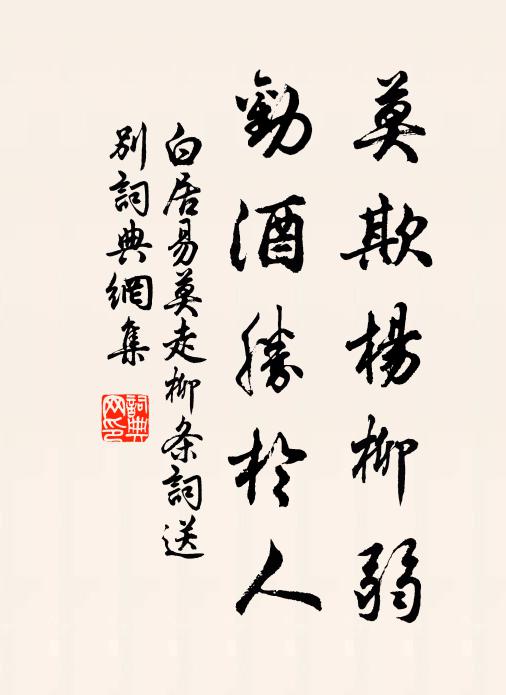 莫欺楊柳弱
勸酒勝於人
白居易莫走柳条詞送
別詞典網集
詞典
网印